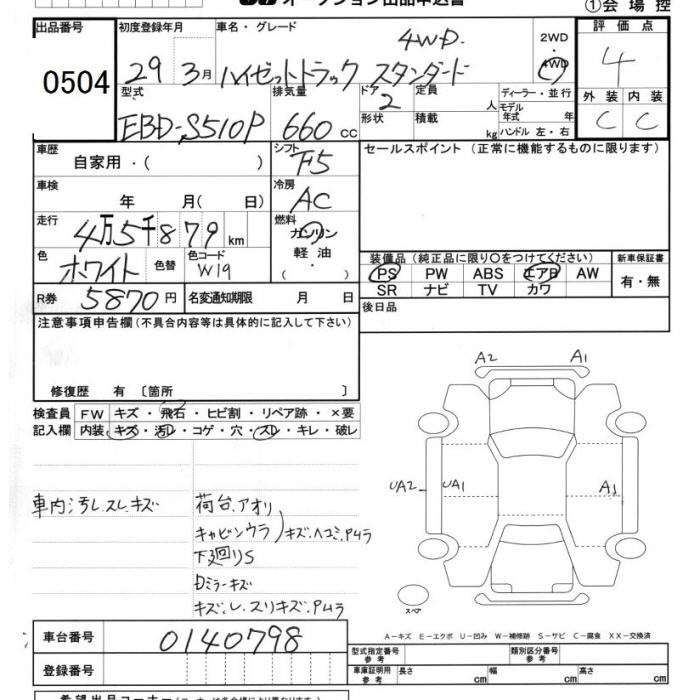 オークション出品申込書
①会場控
出品番号 0504
初度登録年月 29 3月
車名・グレード 4WD
ハイゼットトラック スタンダード
2WD・4WD
評価点 4
外装 C 内装 C
型式 EBD-S510P
排気量 660 cc
ドア 2
形状
定員 人
積載 kg
ディーラー・並行
モデル年式 年
ハンドル 左・右
車歴 自家用・( )
シフト F5
セールスポイント(正常に機能するものに限ります)
車検 年 月( 日)
冷房 AC
走行 4万5千879km
燃料 ガソリン
軽油
・
色 ホワイト 色替
色コード W19
装備品(純正品に限り○をつけてください)
新車保証書
PS PW ABS エアB AW
SR ナビ TV カワ
有・無
R券 5870円
名変通知期限 月 日
後日品
注意事項申告欄(不具合内容等は具体的に記入して下さい)
修復歴 有〔箇所 〕
検査員記入欄
FW キズ・飛石・ヒビ割・リペア跡・×要
内装 キズ・汚レ・コゲ・穴・スレ・キレ・破レ
A2 A1
UA2 UA1 A1
車内汚レスレキズ
荷台、アオリ
キャビンウラ)キズ、ヘコミ、Pムラ
下廻りS
Dミラーキズ
キズ、レ、スリキズ、Pムラ
スペア
車台番号 0140798
A-キズ E-エクボ U-凹み W-補修跡 S-サビ C-腐食 XX-交換済
登録番号
型式指定番号 参考
類別区分番号 参考
車庫証明用 参考 長さ cm 幅 cm 高さ cm
希望出品コーナー